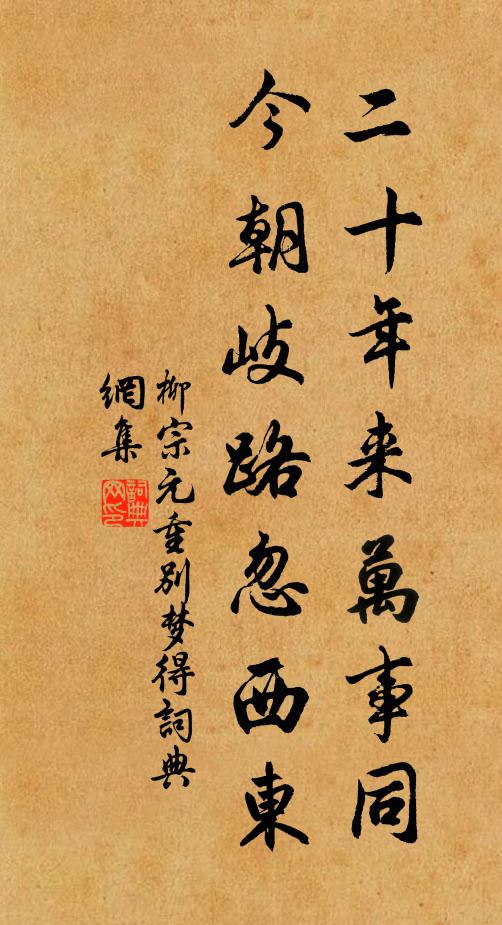 二十年来萬事同
今朝歧路忽西東
柳宗元重别梦得詞典
網集
詞典
网印